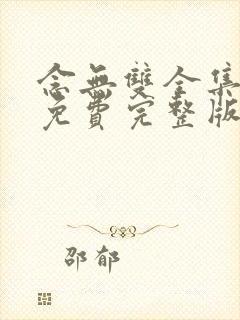 念無雙全集
免費完整版
邵郁